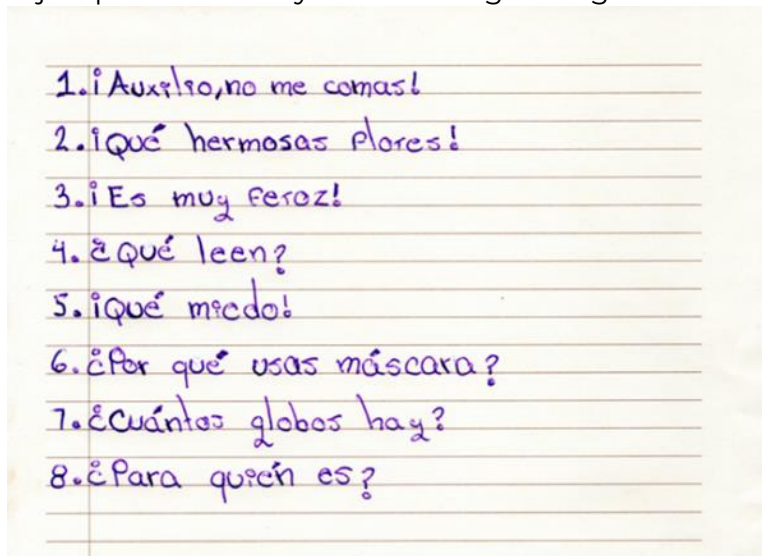 1. ¡Auxilio, no me comas!
2. ¡Qué hermosas flores!
3. ¡Es muy feroz!
4. ¿Qué leen?
5. ¡Qué miedo!
6. ¿Por qué usas máscara?
7. ¿Cuántos globos hay?
8. ¿Para quién es?